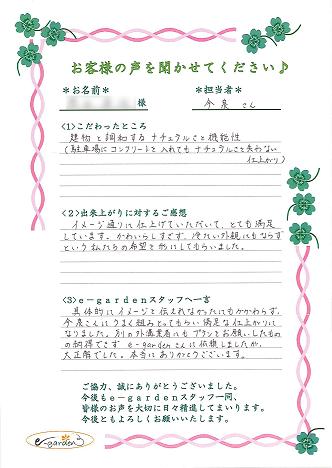 お客様の声を聞かせてください♪
＊お名前＊
様
＊担当者＊
今泉 さん
<1>こだわったところ
建物と調和するナチュラルさと機能性
(駐車場にコンクリートを入れてもナチュラルさを失わない
仕上がり)
<2>出来上がりに対するご感想
イメージ通りに仕上げていただいて、とても満足
しています。かわいらしすぎず、冷たい外観にもならず
という私たちの希望を形にしてもらいました。
<3>e－gardenスタッフへ一言
具体的にイメージを伝えれなかったにもかかわらず、
今泉さんにうまく組みとってもらい満足な仕上がりに
なりました。別の外構業者にもプランをお願いしたもの
の納得できず e-gardenさんに依頼しましたが、
大正解でした。本当にありがとうございます。
ご協力、誠にありがとうございました。
今後もe－gardenスタッフ一同、
皆様のお声を大切に日々精進してまいります。
今後ともよろしくお願いいたします。
e-garden